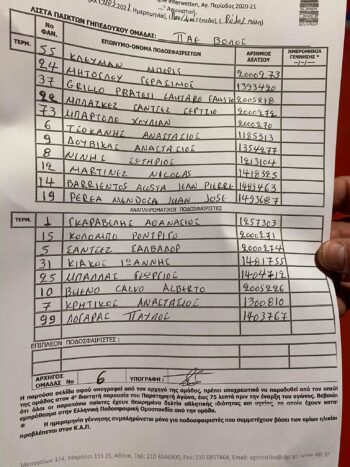 Interwetten, Αγ. Περίοδος 2020-21
ΛΙΣΤΑ ΠΑΙΚΤΩΝ ΓΗΠΕΔΟΥΧΟΥ ΟΜΑΔΑΣ: ΠΑΕ ΒΟΛΟΣ
ΤΕΡΜ. Νο ΦΑΝ. ΕΠΩΝΥΜΟ-ΟΝΟΜΑ ΠΟΔΟΣΦΑΙΡΙΣΤΩΝ ΑΡΙΘΜΟΣ ΔΕΛΤΙΟΥ ΗΜΕΡΟΜΗΝΙΑ ΓΕΝΝΗΣΗΣ *
55 ΚΛΕΥΜΑΝ ΜΠΟΡΙΣ 2000273
24 ΜΗΤΟΓΛΟΥ ΓΕΡΑΣΙΜΟΣ 1393420
37 GRILLO PRATESI LAUTARO FAUSTO 2005218
22 ΜΠΛΑΖΚΕΣ ΣΑΝΤΖΕΣ ΣΕΡΤΖΙΟ 2000272
73 ΜΠΑΡΤΟΛΟ ΧΟΥΛΙΑΝ 2000270
6 ΤΣΟΚΑΝΗΣ ΑΝΑΣΤΑΣΙΟΣ 1185313
9 ΔΟΥΒΙΚΑΣ ΑΝΑΣΤΑΣΙΟΣ 1354277
8 ΝΙΝΗΣ ΣΩΤΗΡΙΟΣ 1213104
12 MARTINEZ NICOLAS 1418325
14 BARRIENTOS ACOSTA JEAN PIERRE 1489463
19 PEREA MENDOZA JUAN JOSE 1493687
ΑΝΑΠΛΗΡΩΜΑΤΙΚΟΙ ΠΟΔΟΣΦΑΙΡΙΣΤΕΣ
ΤΕΡΜ. 1 ΓΚΑΡΑΒΕΛΗΣ ΑΘΑΝΑΣΙΟΣ 1257303
15 ΚΟΛΟΜΠΟ ΡΟΝΤΡΙΓΟ 2000271
5 ΣΑΝΤΖΕΣ ΣΑΛΒΑΔΟΡ 2000274
31 ΚΙΑΚΟΣ ΙΩΑΝΝΗΣ 1481755
25 ΜΠΑΛΛΑΣ ΓΕΩΡΓΙΟΣ 1404712
10 BUENO CALVO ALBERTO 2005226
7 ΚΡΗΤΙΚΟΣ ΑΝΑΣΤΑΣΙΟΣ 1300810
99 ΛΟΓΑΡΑΣ ΠΑΥΛΟΣ 1403767
ΕΠΙΠΛΕΟΝ ΠΟΔΟΣΦΑΙΡΙΣΤΕΣ :
ΑΡΧΗΓΟΣ ΟΜΑΔΑΣ Νο 6 ΥΠΟΓΡΑΦΗ :
Η παρούσα σελίδα αφού υπογραφεί από τον αρχηγό της ομάδας, πρέπει υποχρεωτικά να παραδοθεί από τον υπεύ
της ομάδας στον 4° διαιτητή παρουσία του Παρατηρητή Αγώνα, έως 75 λεπτά πριν την έναρξη του αγώνα, βεβαιών
ότι όλοι οι παραπάνω παίκτες έχουν θεωρημένα δελτία αθλητικής ιδιότητας και υγείας, τα οποία έχουν κατα
εμπρόθεσμα στην Ελληνική Ποδοσφαιρική Ομοσπονδία από την ομάδα.
* Η ημερομηνία γέννησης συμπληρώνεται μόνο για ποδοσφαιριστές που συμμετέχουν βάσει των ορίων ηλικίας
προβλέπεται στο Κ.Α.Π.
Μεσογείων 174, Μαρούσι 151 25, Αθήνα, Τηλ. 210 6840900, Fax 210 6857464, Email: